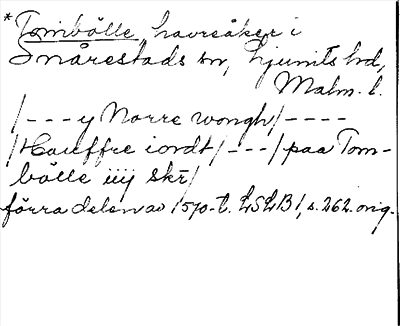 *Tombölle, havreåker i
Snårestads sn, Ljunits hd,
Malm. l.
/ - - - y Norre wongh / - - - -
/ Hauffre iordt / - - - / paa Tom-
bölle iiij skr /
förra delen av 1570-t. LSLB 1, s. 262. orig.